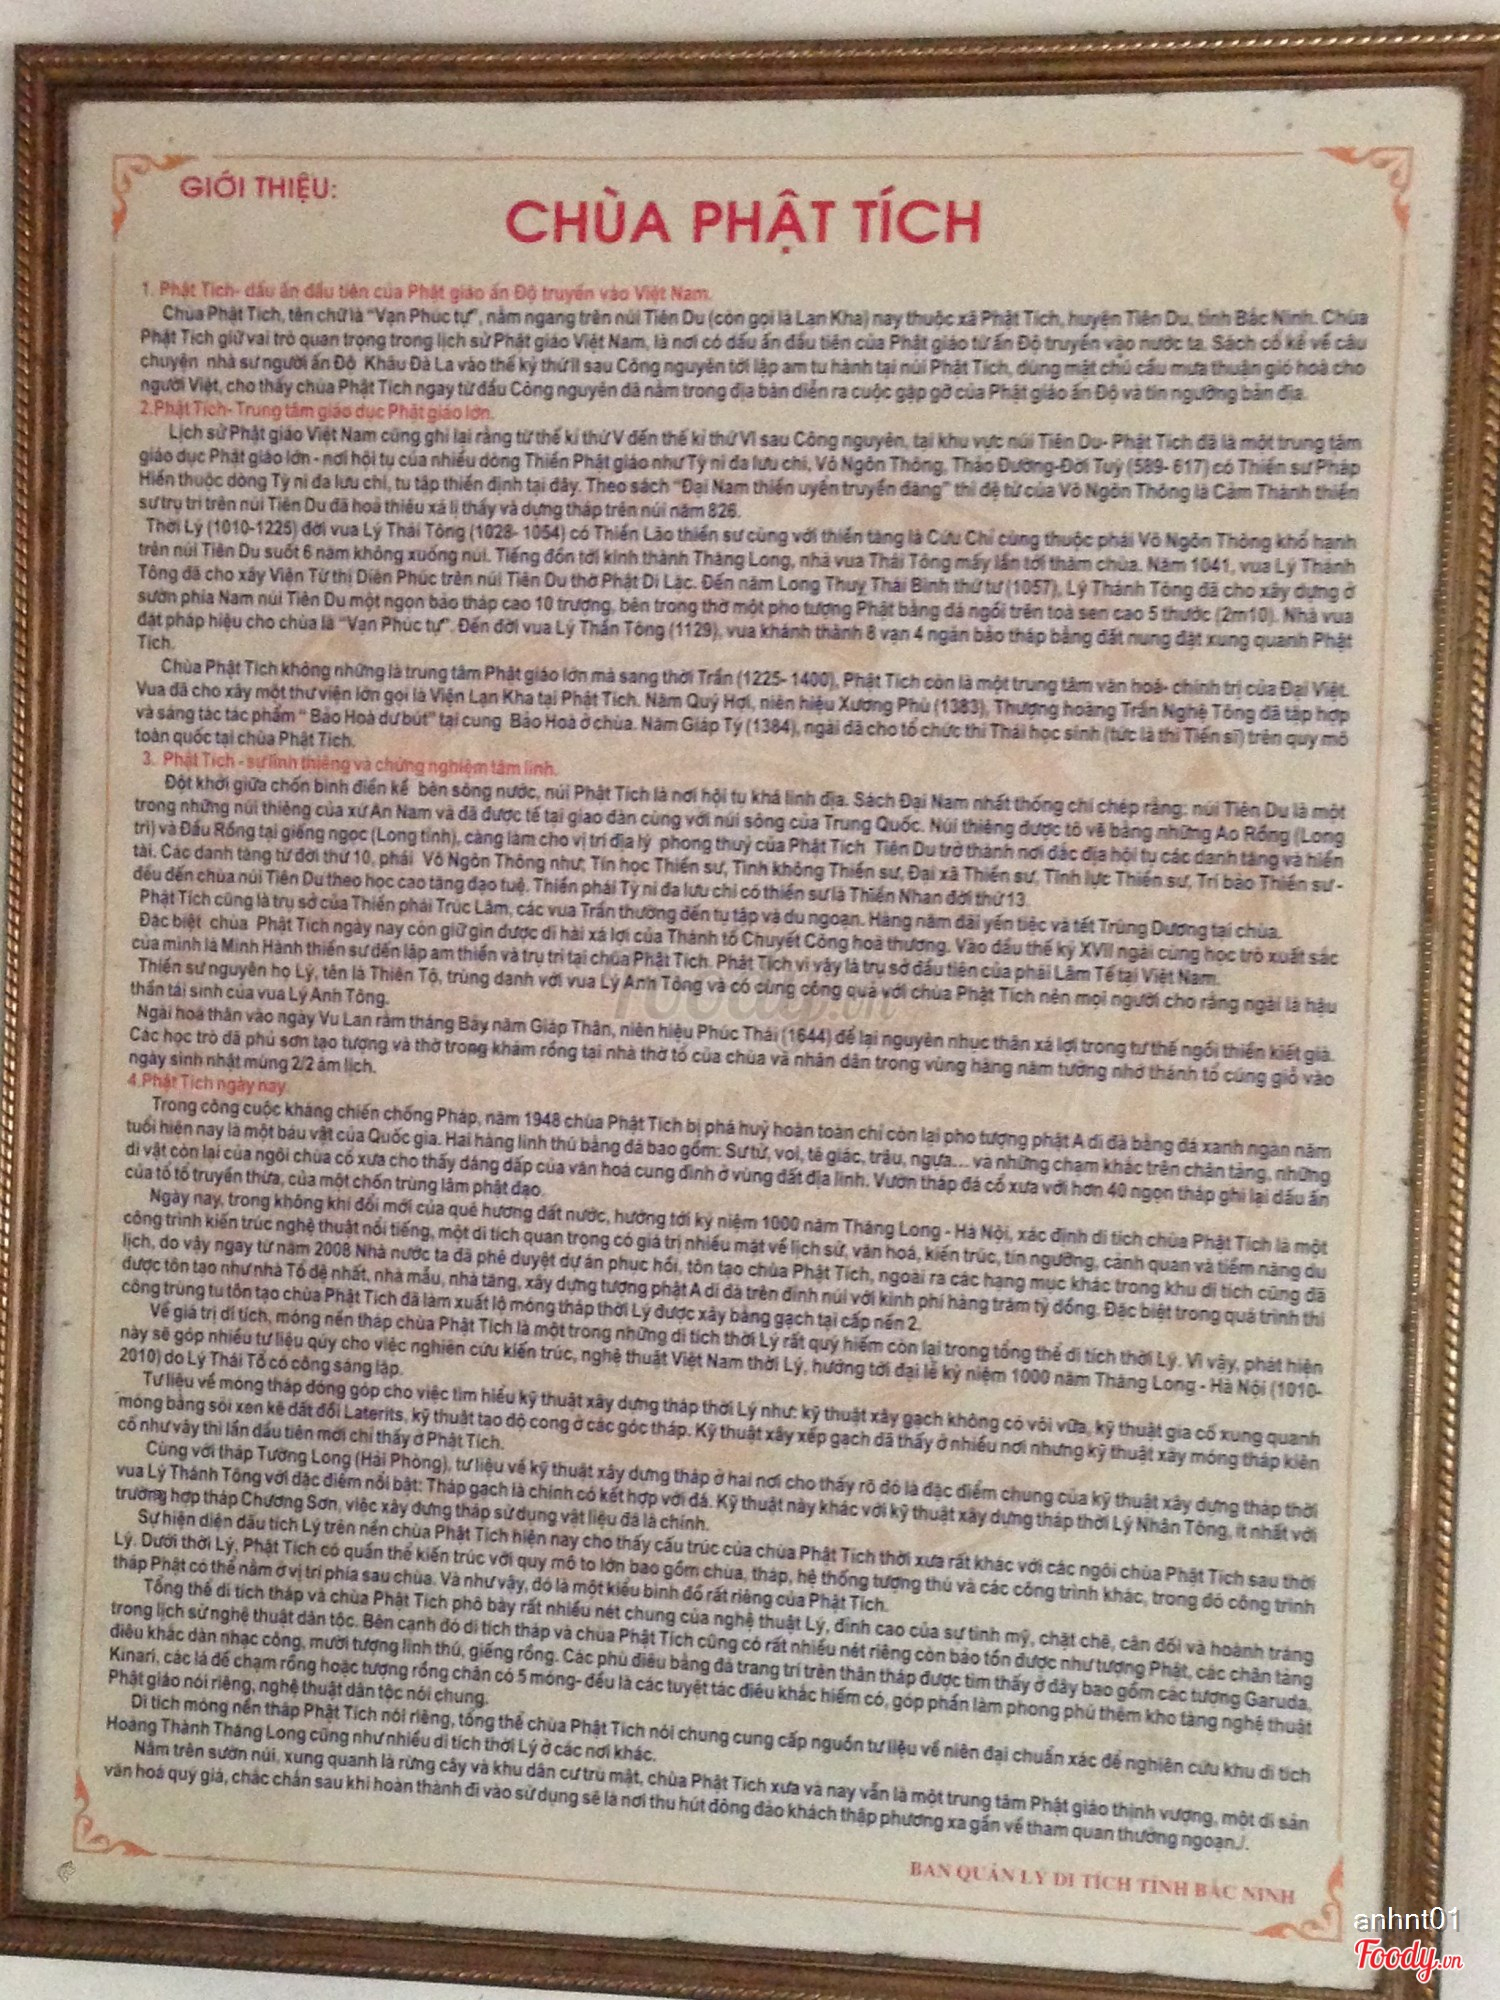 GIỚI THIỆU:
CHÙA PHẬT TÍCH
1. Phật Tích- dấu ấn đầu tiên của Phật giáo ấn Độ truyền vào Việt Nam.
Chùa Phật Tích, tên chữ là “Vạn Phúc tự”, nằm ngang trên núi Tiên Du (còn gọi là Lạn Kha) nay thuộc xã Phật Tích, huyện Tiên Du, tỉnh Bắc Ninh. Chùa
Phật Tích giữ vai trò quan trọng trong lịch sử Phật giáo Việt Nam, là nơi có dấu ấn đầu tiên của Phật giáo từ ấn Độ truyền vào nước ta. Sách cổ kể về câu
chuyện nhà sư người ấn Độ Khâu Đà La vào thế kỷ thứ II sau Công nguyên tới lập am tu hành tại núi Phật Tích, dùng mật chú cầu mưa thuận gió hoà cho
người Việt, cho thấy chùa Phật Tích ngay từ đầu Công nguyên đã nằm trong địa bàn diễn ra cuộc gặp gỡ của Phật giáo ấn Độ và tín ngưỡng bản địa.
2.Phật Tích- Trung tâm giáo dục Phật giáo lớn.
Lịch sử Phật giáo Việt Nam cũng ghi lại rằng từ thế kỉ thứ V đến thế kỉ thứ VI sau Công nguyên, tại khu vực núi Tiên Du- Phật Tích đã là một trung tâm
giáo dục Phật giáo lớn - nơi hội tụ của nhiều dòng Thiền Phật giáo như Tỳ ni đa lưu chi, Vô Ngôn Thông, Thảo Đường-Đời Tuỳ (589- 617) có Thiền sư Pháp
Hiền thuộc dòng Tỳ ni đa lưu chi, tu tập thiền định tại đây. Theo sách “Đại Nam thiền uyển truyền đăng” thì đệ tử của Vô Ngôn Thông là Cảm Thành thiền
sư trụ trì trên núi Tiên Du đã hoả thiêu xá lị thầy và dựng tháp trên núi năm 826.
Thời Lý (1010-1225) đời vua Lý Thái Tông (1028- 1054) có Thiền Lão thiền sư cùng với thiền tăng là Cứu Chỉ cùng thuộc phái Vô Ngôn Thông khổ hạnh
trên núi Tiên Du suốt 6 năm không xuống núi. Tiếng đồn tới kinh thành Thăng Long, nhà vua Thái Tông mấy lần tới thăm chùa. Năm 1041, vua Lý Thánh
Tông đã cho xây Viện Từ thị Diên Phúc trên núi Tiên Du thờ Phật Di Lặc. Đến năm Long Thuỵ Thái Bình thứ tư (1057), Lý Thánh Tông đã cho xây dựng ở
sườn phía Nam núi Tiên Du một ngọn bảo tháp cao 10 trượng, bên trong thờ một pho tượng Phật bằng đá ngồi trên toà sen cao 5 thước (2m10). Nhà vua
đặt pháp hiệu cho chùa là “Vạn Phúc tự”. Đến đời vua Lý Thần Tông (1129), vua khánh thành 8 vạn 4 ngàn bảo tháp bằng đất nung đặt xung quanh Phật
Tích.
Chùa Phật Tích không những là trung tâm Phật giáo lớn mà sang thời Trần (1225- 1400), Phật Tích còn là một trung tâm văn hoá- chính trị của Đại Việt.
Vua đã cho xây một thư viện lớn gọi là Viện Lạn Kha tại Phật Tích. Năm Quý Hợi, niên hiệu Xương Phù (1383), Thượng hoàng Trần Nghệ Tông đã tập hợp
và sáng tác tác phẩm “ Bảo Hoà dư bút” tại cung Bảo Hoà ở chùa. Năm Giáp Tý (1384), ngài đã cho tổ chức thi Thái học sinh (tức là thi Tiến sĩ) trên quy mô
toàn quốc tại chùa Phật Tích.
3. Phật Tích - sự linh thiêng và chứng nghiệm tâm linh.
Đột khởi giữa chốn bình điền kề bên sông nước, núi Phật Tích là nơi hội tụ khá linh địa. Sách Đại Nam nhất thống chí chép rằng: núi Tiên Du là một
trong những núi thiêng của xứ An Nam và đã được tế tại giao đàn cùng với núi sông của Trung Quốc. Núi thiêng được tô vẽ bằng những Ao Rồng (Long
trì) và Đầu Rồng tại giếng ngọc (Long tỉnh), càng làm cho vị trí địa lý phong thuỷ của Phật Tích Tiên Du trở thành nơi đắc địa hội tụ các danh tăng và hiền
tài. Các danh tăng từ đời thứ 10, phái Vô Ngôn Thông như: Tín học Thiền sư, Tịnh không Thiền sư, Đại xả Thiền sư, Tịnh lực Thiền sư, Trí bảo Thiền sư -
đều đến chùa núi Tiên Du theo học cao tăng đạo tuệ. Thiền phái Tỳ ni đa lưu chi có thiền sư là Thiền Nhan đời thứ 13.
Phật Tích cũng là trụ sở của Thiền phái Trúc Lâm, các vua Trần thường đến tu tập và du ngoạn. Hàng năm đãi yến tiệc và tết Trùng Dương tại chùa.
Đặc biệt chùa Phật Tích ngày nay còn giữ gìn được di hài xá lợi của Thánh tổ Chuyết Công hoà thượng. Vào đầu thế kỷ XVII ngài cùng học trò xuất sắc
của mình là Minh Hành thiền sư đến lập am thiền và trụ trì tại chùa Phật Tích. Phật Tích vì vậy là trụ sở đầu tiên của phái Lâm Tế tại Việt Nam.
Thiền sư nguyên họ Lý, tên là Thiên Tộ, trùng danh với vua Lý Anh Tông và có cùng công quả với chùa Phật Tích nên mọi người cho rằng ngài là hậu
thần tái sinh của vua Lý Anh Tông.
Ngài hoá thân vào ngày Vu Lan rằm tháng Bảy năm Giáp Thân, niên hiệu Phúc Thái (1644) để lại nguyên nhục thân xá lợi trong tư thế ngồi thiền kiết già.
Các học trò đã phủ sơn tạo tượng và thờ trong khám rồng tại nhà thờ tổ của chùa và nhân dân trong vùng hàng năm tưởng nhớ thánh tổ cúng giỗ vào
ngày sinh nhật mùng 2/2 âm lịch.
4.Phật Tích ngày nay.
Trong công cuộc kháng chiến chống Pháp, năm 1948 chùa Phật Tích bị phá huỷ hoàn toàn chỉ còn lại pho tượng phật A di đà bằng đá xanh ngàn năm
tuổi hiện nay là một báu vật của Quốc gia. Hai hàng linh thú bằng đá bao gồm: Sư tử, voi, tê giác, trâu, ngựa... và những chạm khắc trên chân tảng, những
di vật còn lại của ngôi chùa cổ xưa cho thấy dáng dấp của văn hoá cung đình ở vùng đất địa linh. Vườn tháp đá cổ xưa với hơn 40 ngọn tháp ghi lại dấu ấn
của tổ tổ truyền thừa, của một chốn trùng lâm phật đạo.
Ngày nay, trong không khí đổi mới của quê hương đất nước, hướng tới kỷ niệm 1000 năm Thăng Long - Hà Nội, xác định di tích chùa Phật Tích là một
công trình kiến trúc nghệ thuật nổi tiếng, một di tích quan trọng có giá trị nhiều mặt về lịch sử, văn hoá, kiến trúc, tín ngưỡng, cảnh quan và tiềm năng du
lịch, do vậy ngay từ năm 2008 Nhà nước ta đã phê duyệt dự án phục hồi, tôn tạo chùa Phật Tích, ngoài ra các hạng mục khác trong khu di tích cũng đã
được tôn tạo như nhà Tổ đệ nhất, nhà mẫu, nhà tăng, xây dựng tượng phật A di đà trên đỉnh núi với kinh phí hàng trăm tỷ đồng. Đặc biệt trong quá trình thi
công trùng tu tôn tạo chùa Phật Tích đã làm xuất lộ móng tháp thời Lý được xây bằng gạch tại cấp nền 2.
Về giá trị di tích, móng nền tháp chùa Phật Tích là một trong những di tích thời Lý rất quý hiếm còn lại trong tổng thể di tích thời Lý. Vì vậy, phát hiện
này sẽ góp nhiều tư liệu qúy cho việc nghiên cứu kiến trúc, nghệ thuật Việt Nam thời Lý, hướng tới đại lễ kỷ niệm 1000 năm Thăng Long - Hà Nội (1010-
2010) do Lý Thái Tổ có công sáng lập.
Tư liệu về móng tháp đóng góp cho việc tìm hiểu kỹ thuật xây dựng tháp thời Lý như: kỹ thuật xây gạch không có vôi vữa, kỹ thuật gia cố xung quanh
móng bằng sỏi xen kẽ đất đồi Laterits, kỹ thuật tạo độ cong ở các góc tháp. Kỹ thuật xây xếp gạch đã thấy ở nhiều nơi nhưng kỹ thuật xây móng tháp kiên
cố như vậy thì lần đầu tiên mới chỉ thấy ở Phật Tích.
Cùng với tháp Tường Long (Hải Phòng), tư liệu về kỹ thuật xây dựng tháp ở hai nơi cho thấy rõ đó là đặc điểm chung của kỹ thuật xây dựng tháp thời
vua Lý Thánh Tông với đặc điểm nổi bật: Tháp gạch là chính có kết hợp với đá. Kỹ thuật này khác với kỹ thuật xây dựng tháp thời Lý Nhân Tông, ít nhất với
trường hợp tháp Chương Sơn, việc xây dựng tháp sử dụng vật liệu đá là chính.
Sự hiện diện dấu tích Lý trên nền chùa Phật Tích hiện nay cho thấy cấu trúc của chùa Phật Tích thời xưa rất khác với các ngôi chùa Phật Tích sau thời
Lý. Dưới thời Lý, Phật Tích có quần thể kiến trúc với quy mô to lớn bao gồm chùa, tháp, hệ thống tượng thú và các công trình khác, trong đó công trình
tháp Phật có thể nằm ở vị trí phía sau chùa. Và như vậy, đó là một kiểu bình đồ rất riêng của Phật Tích.
Tổng thể di tích tháp và chùa Phật Tích phô bày rất nhiều nét chung của nghệ thuật Lý, đỉnh cao của sự tinh mỹ, chặt chẽ, cân đối và hoành tráng
trong lịch sử nghệ thuật dân tộc. Bên cạnh đó di tích tháp và chùa Phật Tích cũng có rất nhiều nét riêng còn bảo tồn được như tượng Phật, các chân tảng
điêu khắc dàn nhạc công, mười tượng linh thú, giếng rồng. Các phù điêu bằng đá trang trí trên thân tháp được tìm thấy ở đây bao gồm các tượng Garuda,
Kinari, các lá đề chạm rồng hoặc tượng rồng chân có 5 móng- đều là các tuyệt tác điêu khắc hiếm có, góp phần làm phong phú thêm kho tàng nghệ thuật
Phật giáo nói riêng, nghệ thuật dân tộc nói chung.
Di tích móng nền tháp Phật Tích nói riêng, tổng thể chùa Phật Tích nói chung cung cấp nguồn tư liệu về niên đại chuẩn xác để nghiên cứu khu di tích
Hoàng Thành Thăng Long cũng như nhiều di tích thời Lý ở các nơi khác.
Nằm trên sườn núi, xung quanh là rừng cây và khu dân cư trù mật, chùa Phật Tích xưa và nay vẫn là một trung tâm Phật giáo thịnh vượng, một di sản
văn hoá quý giá, chắc chắn sau khi hoàn thành đi vào sử dụng sẽ là nơi thu hút đông đảo khách thập phương xa gần về tham quan thưởng ngoạn./.
BAN QUẢN LÝ DI TÍCH TỈNH BẮC NINH
anhnt01
Foody.vn